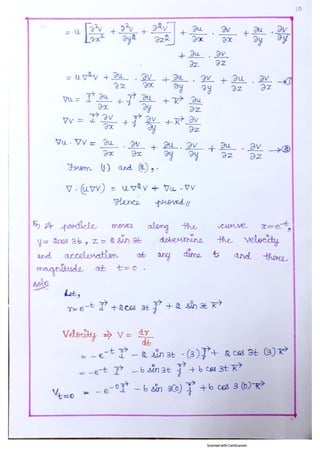 10
= u [∂²v/∂x² + ∂²v/∂y² + ∂²v/∂z²] + ∂u/∂x . ∂v/∂x + ∂u/∂y . ∂v/∂y
+ ∂u/∂z . ∂v/∂z
= u∇²v + ∂u/∂x . ∂v/∂x + ∂u/∂y . ∂v/∂y + ∂u/∂z . ∂v/∂z →①
∇u = i⃗ ∂u/∂x + j⃗ ∂u/∂y + k⃗ ∂u/∂z
∇v = i⃗ ∂v/∂x + j⃗ ∂v/∂y + k⃗ ∂v/∂z
∇u . ∇v = ∂u/∂x . ∂v/∂x + ∂u/∂y . ∂v/∂y + ∂u/∂z . ∂v/∂z →②
From (1) and (2),
∇ . (u∇v) = u∇²v + ∇u . ∇v
Hence proved //
5) A particle moves along the curve x=e^-t,
y = 2cos 3t, z = 2 sin 3t determine the velocity
and acceleration at any time t and there
magnitude at t=0.
Soln
Let,
r = e^-t i⃗ + 2 cos 3t j⃗ + 2 sin 3t k⃗
Velocity ⇒ V = dr/dt
= -e^-t i⃗ - 2 sin 3t . (3) j⃗ + 2 cos 3t (3) k⃗
= -e^-t i⃗ - 6 sin 3t j⃗ + 6 cos 3t k⃗
V_t=0 = -e^-0 i⃗ - 6 sin 3(0) j⃗ + 6 cos 3(0) k⃗
Scanned with CamScanner